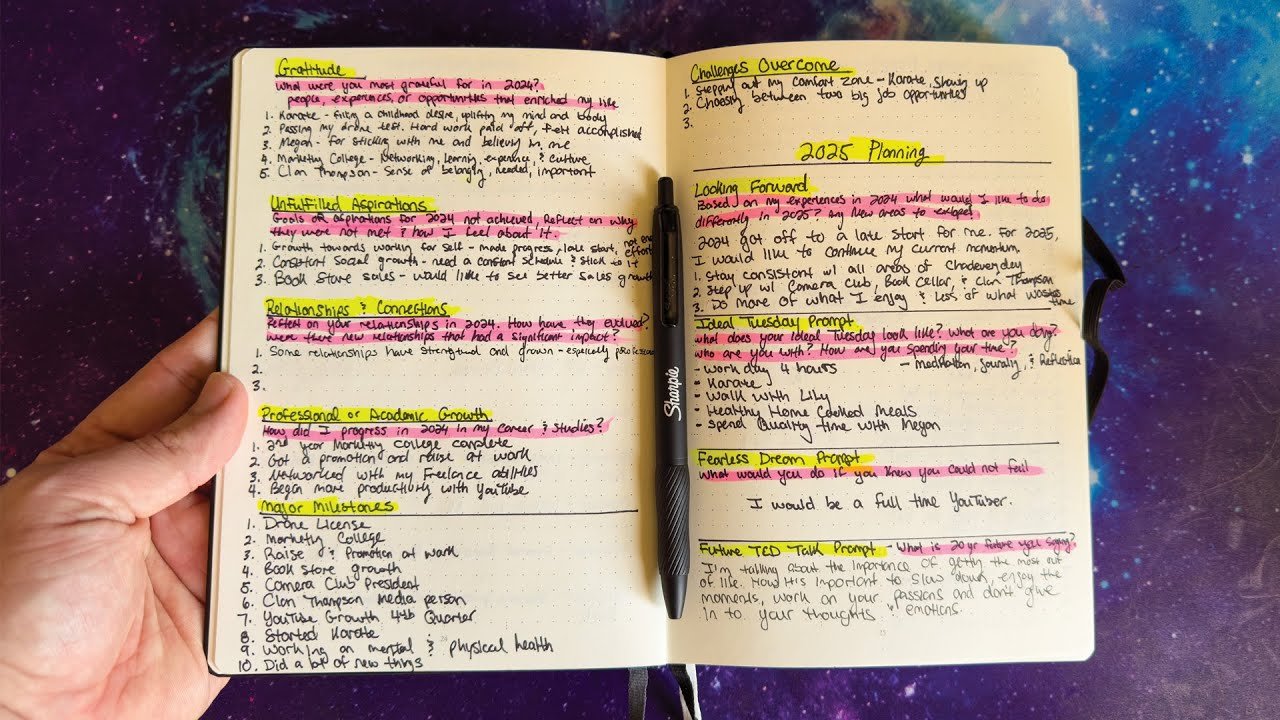 Gratitude
What were you most grateful for in 2024?
people, experiences, or opportunities that enriched my life
1. Karate - filling a childhood desire, uplifting my mind and body
2. Passing my drone test. Hard work paid off, felt accomplished
3. Megan - for sticking with me and believing in me
4. Marketing College - Networking, learning, experience, & culture
5. Clan Thompson - Sense of belonging, needed, important
Unfulfilled Aspirations
Goals or aspirations for 2024 not achieved, Reflect on why
they were not met & how I feel about it.
1. Growth towards working for self - made progress, late start, not enough effort
2. Consistent Social growth - need a constant schedule & stick to it
3. Book Store sales - would like to see better sales growth
Relationships & Connections
Reflect on your relationships in 2024. How have they evolved?
Were there new relationships that had a significant impact?
1. Some relationships have strengthened and grown - especially
2.
3.
Professional or Academic Growth
How did I progress in 2024 in my career & studies?
1. 2nd year Marketing College complete
2. Got a promotion and raise at work
3. Networked with my Freelance abilities
4. Began more productivity with YouTube
Major Milestones
1. Drone License
2. Marketing College
3. Raise & Promotion at work
4. Book store growth
5. Camera Club President
6. Clan Thompson Media person
7. YouTube Growth 4th Quarter
8. Started Karate
9. Working on mental & physical health
10. Did a lot of new things
Sharpie
Challenges Overcome
1. Stepping out my comfort zone - Karate, Showing up
2. Choosing between two big job opportunities
3.
2025 Planning
Looking Forward
Based on my experiences in 2024 what would I like to do
differently in 2025? Any New areas to explore?
2024 got off to a late start for me. For 2025,
I would like to continue my current momentum.
1. Stay consistent w/ all areas of Chadeveryday
2. Step up w/ Camera Club, Book Cellar, & Clan Thompson
3. Do more of what I enjoy & less of what wastes time
Ideal Tuesday Prompt
What does your ideal Tuesday look like? What are you doing?
Who are you with? How are you spending your time?
- Work day 4 hours - Meditation, Journaling, & Reflection
• Karate
• Walk with Lily
• Healthy Home Cooked Meals
• Spend Quality time with Megan
Fearless Dream Prompt
What would you do if you knew you could not fail
I would be a full time YouTuber.
Future TED Talk Prompt - What is 20 yr future you saying?
I'm talking about the importance of getting the most out
of life. How it is important to slow down, enjoy the
moments, work on your passions and don't give
in to your thoughts & emotions.